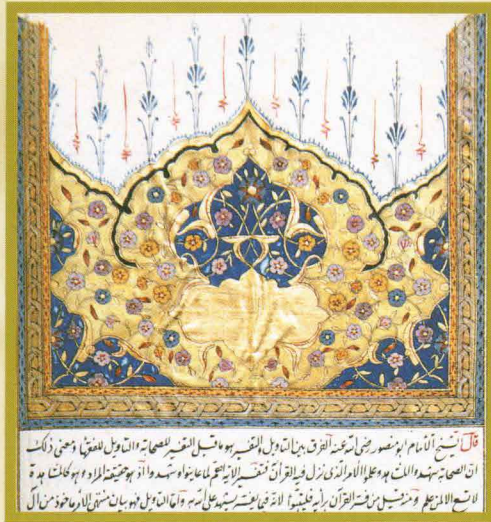 قال الشيخ الامام ابو منصور رضى الله عنه الفرق بين التاويل والتفسير هو ما قيل التفسير للصحابة والتاويل للفقهاء ومعنى ذلك
ان الصحابة شهدوا المشاهد وعلموا الامر الذى نزل فيه القرآن فتفسير الاية اهم لما عاينوا وشهدوا اذ هو حقيقة المراد وهو كالمشاهدة
لا تسمع الا لمن علم ومنه قيل من فسر القرآن برأيه فليتبوأ لانه فيما يفسر يشهد على الله به واما التاويل فهو بيان منتهى الامر مأخوذ من آل